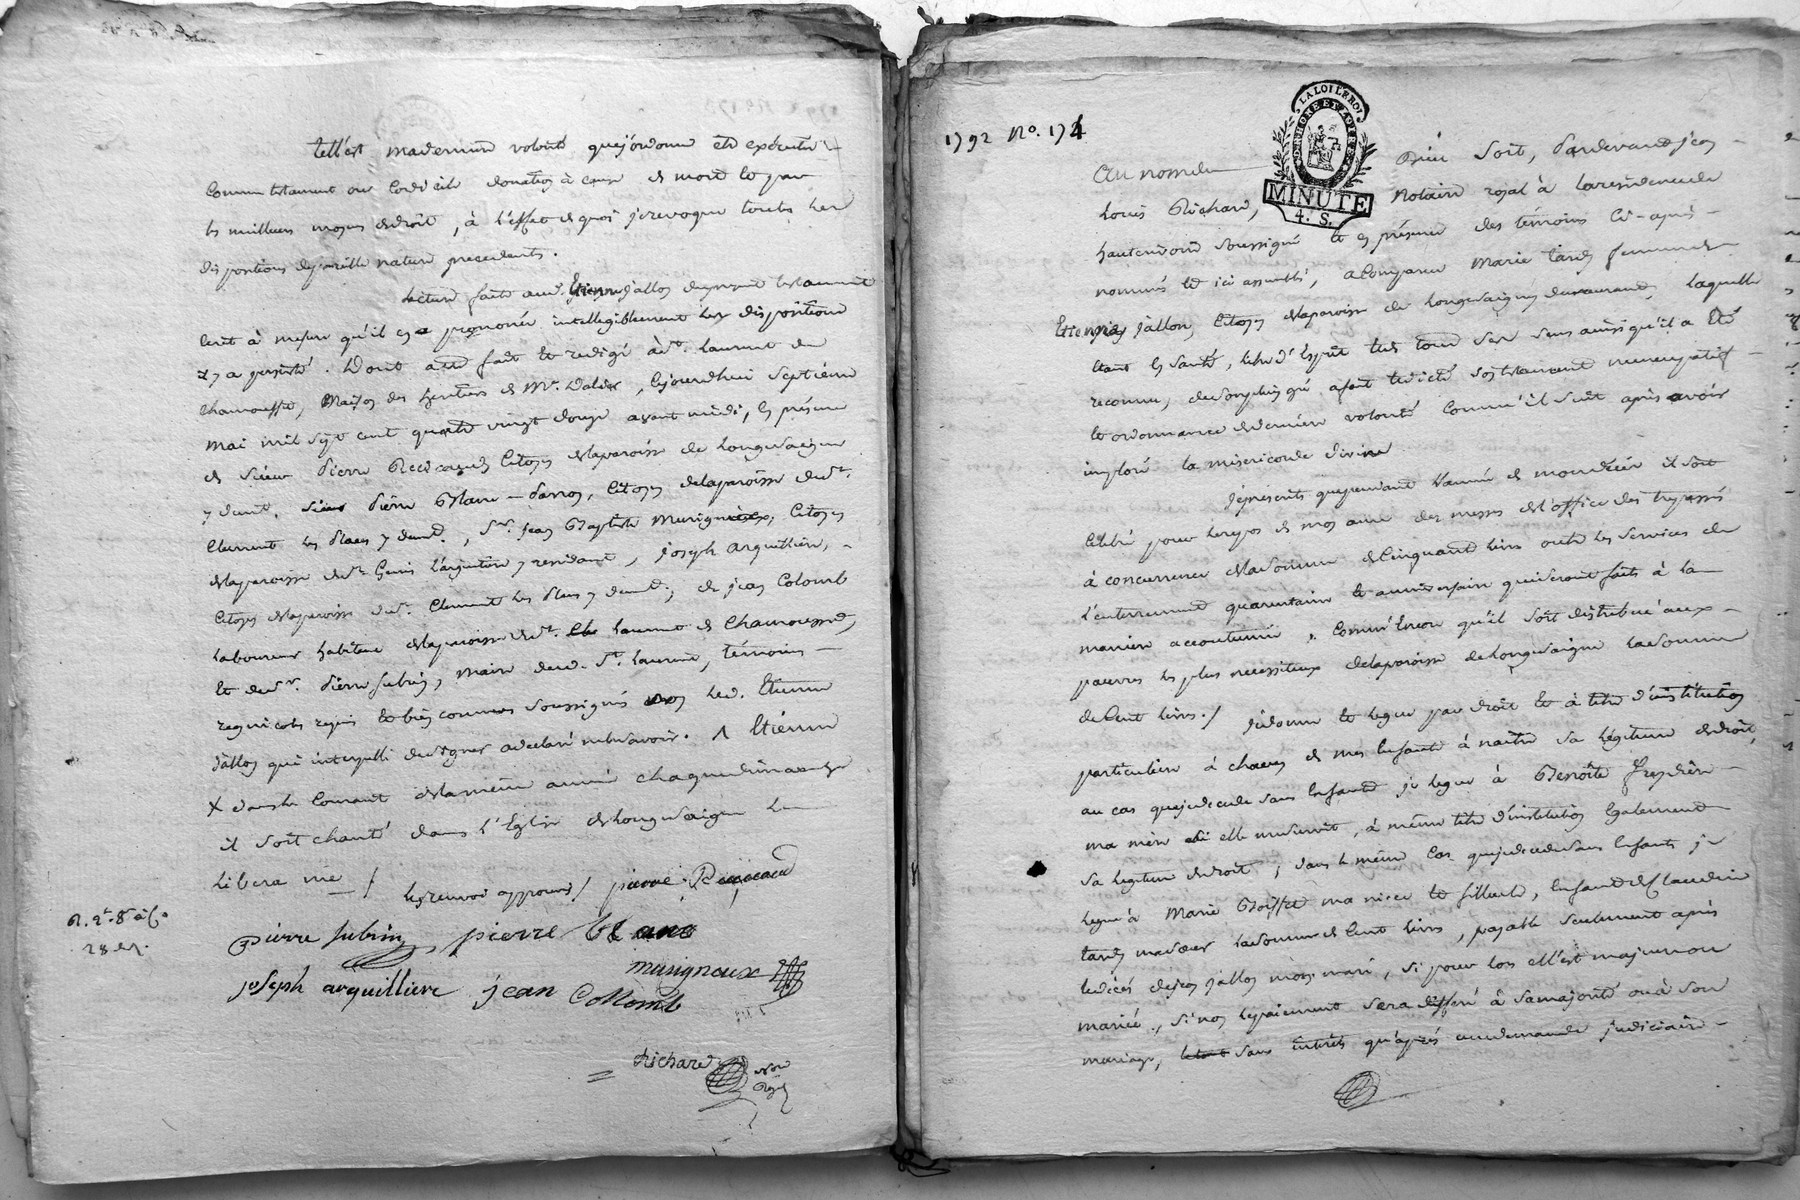 tell'est maderniere volonté quej'ordonne etre exécuté
comme testament ou codicile donation à cause de mort et par
les meilleurs moyens dedroit, à l'effet de quoi jerevoque toutes les
dispositions depareille nature precedentes.
lecture faite aud. Etienne jallon duprésent testament
écrit à mesure qu'il en a prononcé intelligiblement les dispositions
il y a persisté. Dont acte fait et redigé à st. laurent de
chamousset, maison des héritiers de Mr. , cejourdhui septieme
mai mil sept cent quatre vingt douze avant midi, en présence
de sieur pierre citoyen delaparoisse de longesaigne
y demt. sieur pierre Blanc citoyen delaparoisse de st.
Clement les places y demt., sr. jean Baptiste Musigneux, citoyen
delaparoisse de st. Genis l'argentiere y residant, joseph arquilliere,
citoyen delaparoisse de st. Clement les places y demt.; de jean Colomb
laboureur habitant delaparoisse de st. laurent de Chamousset,
et de sr. pierre subrin, maire dud. st. laurent, témoins
requis et bien connus soussignés non led. Etienne
jallon qui interpellé designer adeclaré nelesavoir. Etienne
X dans le courant delamême année chaquedimanche
il soit chanté dans l'Eglise delongesaigne le
libera me / les renvois approuvés / pierre
pierre subrin, pierre blanc
musigneux
joseph arquilliere jean Collomb
Richard
not
Royal
R. 2t. 8s
28
1792 No. 174
LA LOI LE ROI
MINUTE
4. S.
au nom de Dieu soit, pardevant jean
louis Richard, notaire royal à laresidence de
hauterivoire soussigné et en présence des témoins ci-après
nommés et ici assemblés, a comparu Marie femme de
Etienne jallon, citoyen delaparoisse de longesaigne laquelle
étant en santé, libre d'Esprit et de tous ses sens ainsi qu'il a Eté
reconnu, desonplein gré afait et dicté son testament nuncupatif
et ordonnance dederniere volonté comm'il suit après avoir
imploré la misericorde divine.
jeprescris quependant l'année de mon décès il soit
célébré pour lerepos de mon ame des messes de l'office des trepassés
à concurrence delasomme decinquante livres outre les services de
l'enterrement quarantaine et anniversaire quiseront faits à la
maniere accoutumée. Comm'encore qu'il soit distribué aux
pauvres les plus necessiteux delaparoisse delongesaigne lasomme
decent livres. / jedonne et legue par droit et à titre d'institution
particuliere à chacun de mes enfants à naître sa légitime dedroit,
au cas quejedecede sans enfants je legue à Benoîte
ma mère si elle mesurvit, à même titre d'institution également
sa légitime dedroit; dans le même cas quejedecede sans enfants je
legue à Marie ma niece et filleule, enfant de Claudine
masœur lasomme de cent livres, payable seulement après
ledecès dejean jallon mon mari, si pour lors ell'est majeure ou
mariée, si non lepaiement sera différé à samajorité ou à son
mariage, sans intérêts qu'après unedemande judiciaire